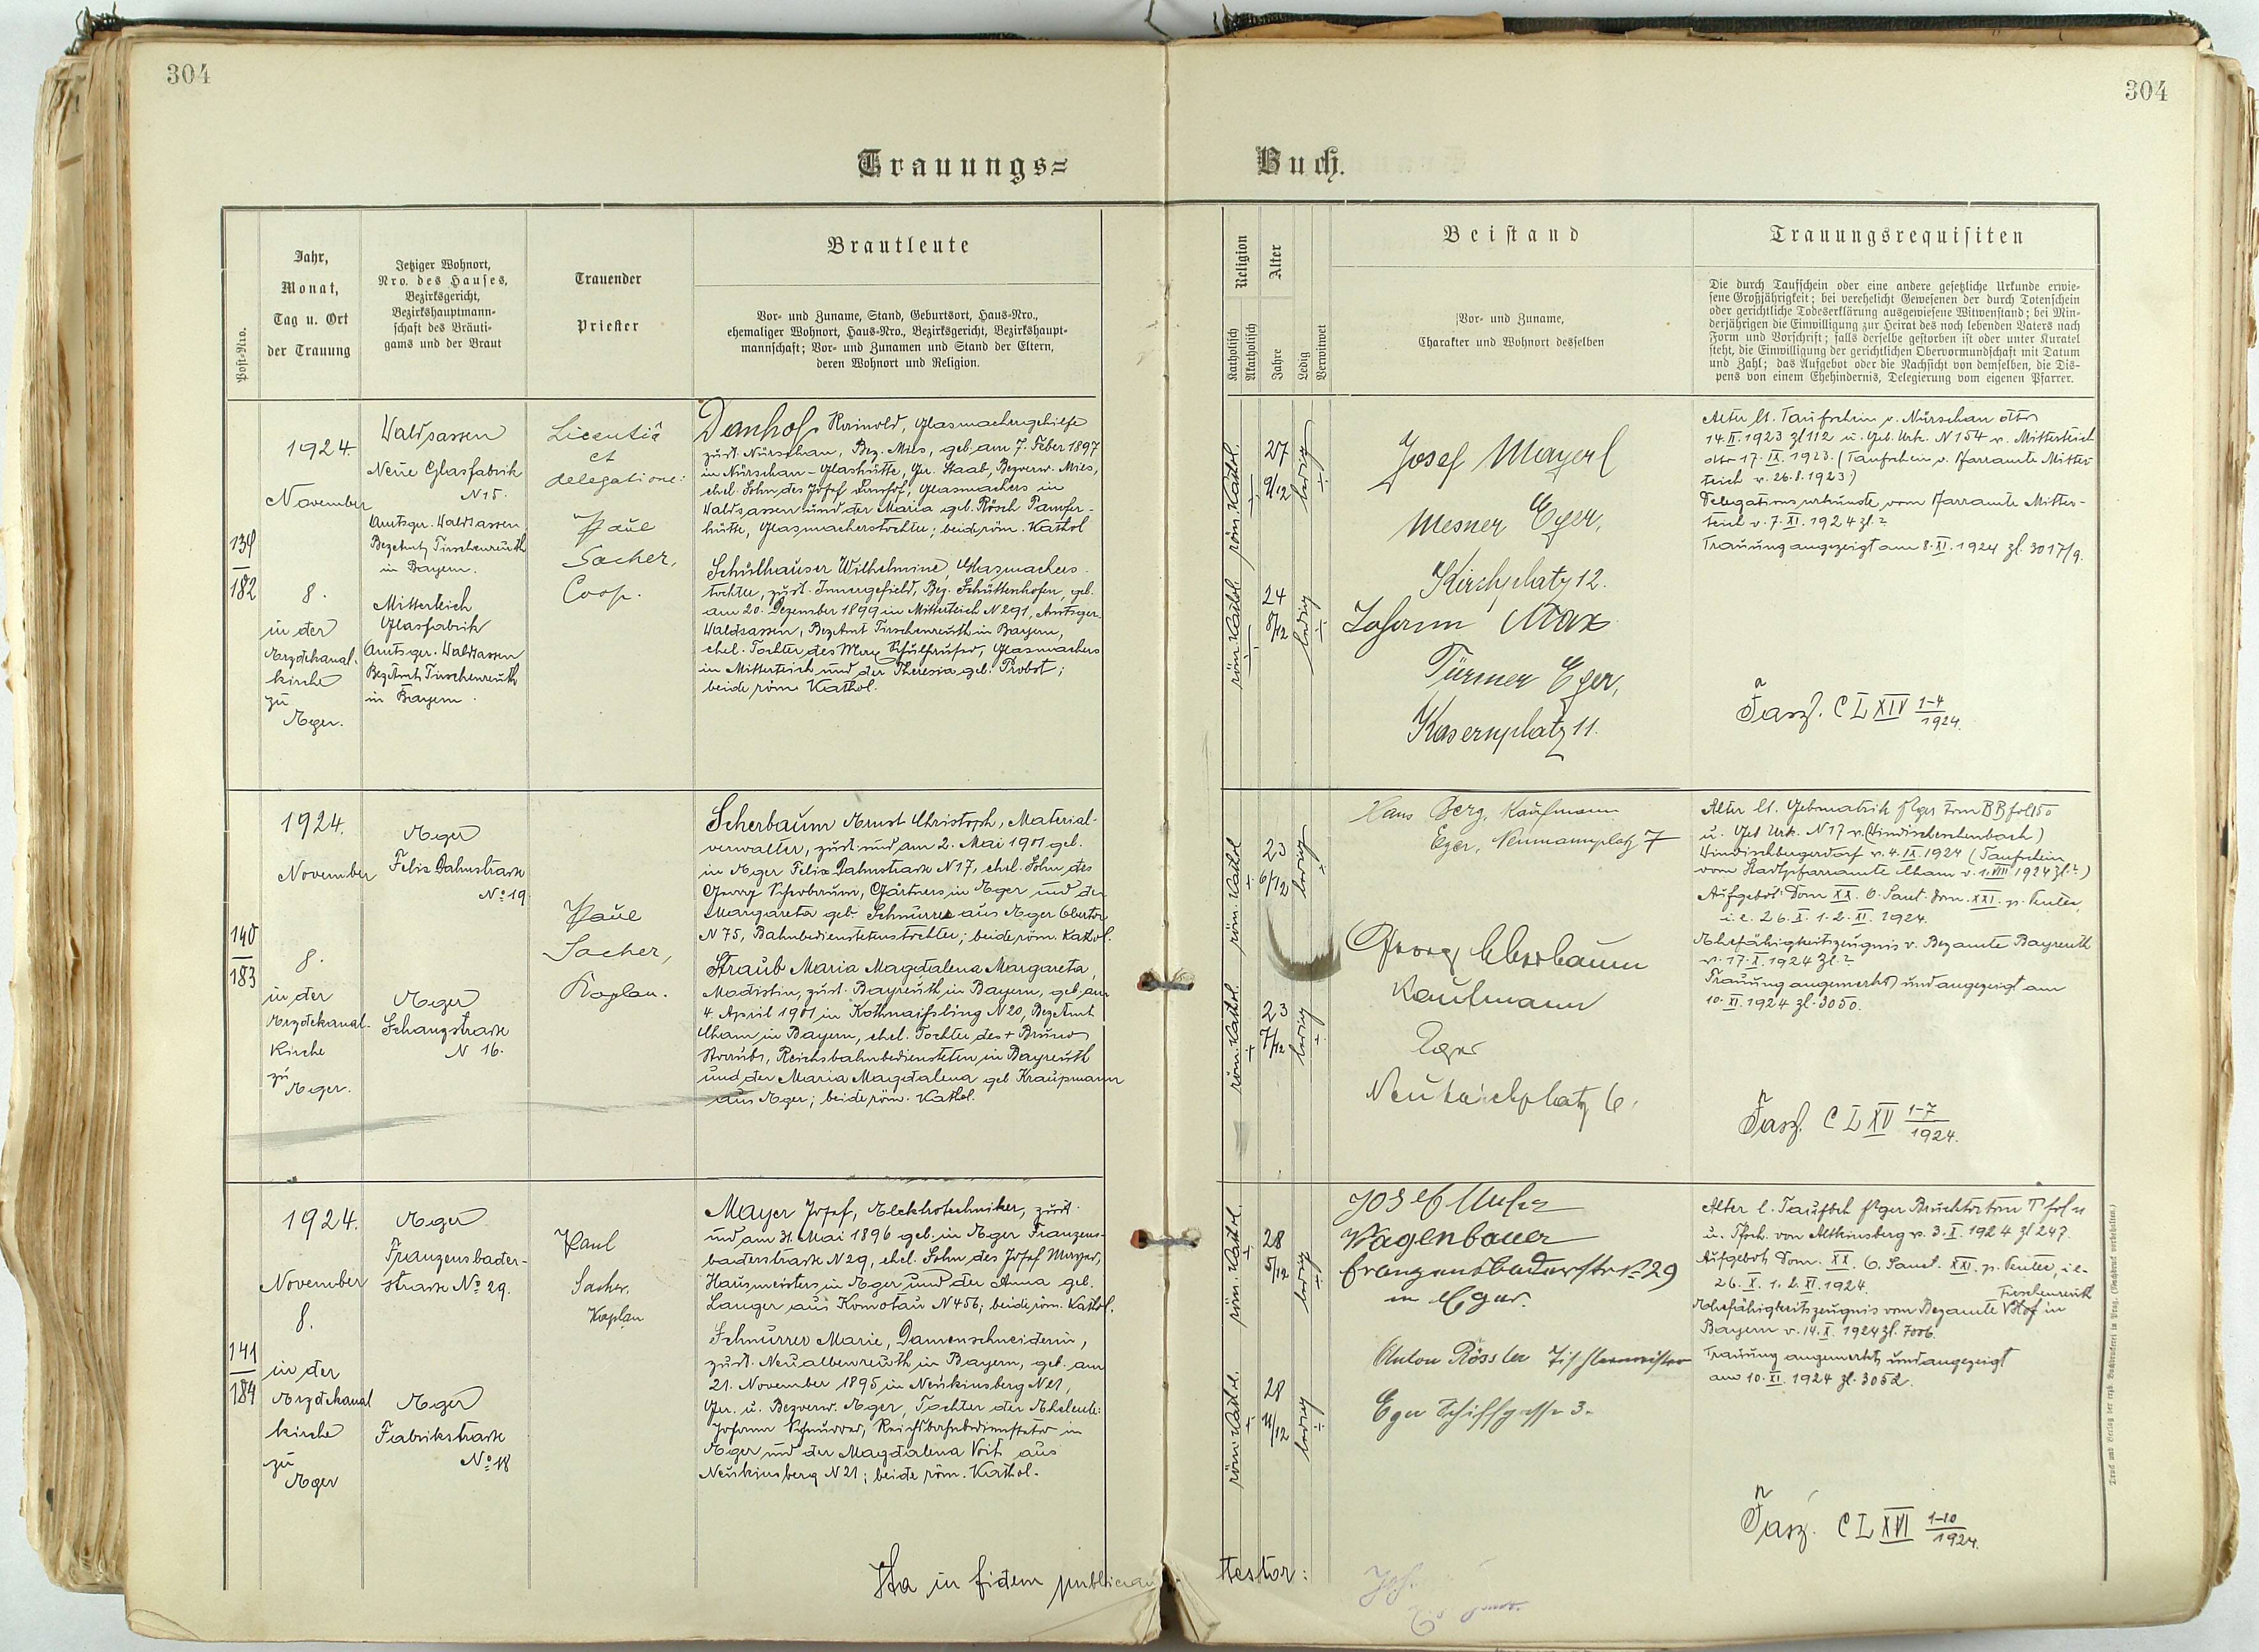 304
304
Trauungs=
Buch.
Post-Nro.
Jahr,
Monat,
Tag u. Ort
der Trauung
Jetziger Wohnort,
Nro. des Hauses,
Bezirksgericht,
Bezirkshauptmann-
schaft des Bräuti-
gams und der Braut
Trauender
Priester
Brautleute
Vor- und Zuname, Stand, Geburtsort, Haus-Nro.,
ehemaliger Wohnort, Haus-Nro., Bezirksgericht, Bezirkshaupt-
mannschaft; Vor- und Zunamen und Stand der Eltern,
deren Wohnort und Religion.
Religion
Katholisch
Akatholisch
Alter
Jahre
Ledig
Verwitwet
Beistand
Vor- und Zuname,
Charakter und Wohnort desselben
Trauungsrequisiten
Die durch Taufschein oder eine andere gesetzliche Urkunde erwie-
sene Großjährigkeit; bei verehelicht Gewesenen der durch Totenschein
oder gerichtliche Todeserklärung ausgewiesene Witwenstand; bei Min-
derjährigen die Einwilligung zur Heirat des noch lebenden Vaters nach
Form und Vorschrift; falls derselbe gestorben ist oder unter Kuratel
steht, die Einwilligung der gerichtlichen Obervormundschaft mit Datum
und Zahl; das Aufgebot oder die Nachsicht von demselben, die Dis-
pens von einem Ehehindernis, Delegierung vom eigenen Pfarrer.
139
182
1924
November
8.
in der
Erzdekanal-
kirche
zu
Eger.
Waldsassen
Neue Glasfabrik
N 15.
Amtsger. Waldsassen
Bezamt Tirschenreuth
in Bayern.
Mitterteich
Glasfabrik
Amtsger. Waldsassen
Bezamt Tirschenreuth
in Bayern.
Licentiâ
et
delegatione:
Paul
Sacher,
Coop.
Danhof Rainold, Glasmachergehilfe
zust. Nürschan, Bez. Mies, geb. am 7. Feber 1897
in Nürschan-Glashütte, Ger. Staab, Bezverw. Mies,
ehel. Sohn des Josef Danhof, Glasmachers in
Waldsassen und der Maria geb. Rösch Panfer-
hütte, Glasmacherstochter; beide röm. Kathol
Schulhauser Wilhelmine, Glasmachers-
tochter, zust. Innergefield, Bez. Schüttenhofen, geb.
am 20. Dezember 1899 in Mitterteich N 291, Amtsger.
Waldsassen, BezAmt Tirschenreuth in Bayern,
ehel. Tochter des Max Schulhauser, Glasmachers
in Mitterteich und der Theresia geb. Probst;
beide röm. Kathol.
röm. Kathol.
27
9/12
ledig
röm. Kathol
24
8/12
ledig
Josef Mayerl
Mesner Eger,
Kirchplatz 12.
Johann Max
Türmer Eger,
Kasernplatz 11.
Alter lt. Taufschein v. Nürschan dtto
14.II.1923 zl 112 u. Geb. Urk. N 154 v. Mitterteich
dtto 17.IX.1923. (Taufschein v. Pfarramte Mitter-
teich v. 26.8.1923)
Delegationsurkunde vom Pfarramte Mitter-
teich v. 7.XI.1924 zl.?
Trauung angezeigt am 8.XI.1924 zl. 3017/9.
Fasz. C L XIV 1-4
1924.
140
183
1924.
November
8.
in der
Erzdekanal-
kirche
zu
Eger.
Eger
Felix Dahnstrasse
No 19
Eger
Schanzstrasse
N 16.
Paul
Sacher,
Kaplan.
Scherbaum Ernst Christoph, Material-
verwalter, zust. und am 2. Mai 1901 geb.
in Eger Felix Dahnstrasse N 17, ehel. Sohn des
Georg Scherbaum, Gärtners in Eger und der
Margareta geb. Schnurrer aus Eger Obertor
N 75, Bahnbedienstetenstochter; beide röm. Kathol.
Straub Maria Magdalena Margareta,
Modistin, zust. Bayreuth in Bayern, geb. am
4. April 1901 in Kothmaissling N 20, BezAmt
Cham in Bayern, ehel. Tochter des + Bruno
Straub, Reichsbahnbediensteten in Bayreuth
und der Maria Magdalena geb Kraupmann
aus Eger; beide röm. Kathol.
röm. Kathol
23
6/12
ledig
röm. Kathol.
23
7/12
ledig
Hans Berg, Kaufmann
Eger, Neumannplatz 7
Georg Scherbaum
Kaufmann
Eger
Neukirchplatz 6.
Alter lt. Gebmatrik Eger Tom BB fol 150
u. Geb Urk. N 17 v. (Windischeschenbach)
Windischbergerdorf v. 4.IX.1924 (Taufschein
vom Stadtpfarramte Cham v. 1.VIII 1924 zl.?)
Aufgebot: Dom XX. O. Sanct. Dom. XXI. p. Pentec.
i.e. 26.X. 1. 2. XI. 1924.
Ehefähigkeitszeugnis v. Bezamte Bayreuth
v. 17.X.1924 Zl.?
Trauung angemerkt und angezeigt am
10.XI.1924 zl. 3050.
Fasz. C L XV 1-7
1924.
141
184
1924.
November
8.
in der
Erzdekanal
kirche
zu
Eger
Eger
Franzensbader-
strasse No 29.
Eger
Fabrikstrasse
No 18
Paul
Sacher,
Kaplan
Mayer Josef, Elektrotechniker, zust.
und am 31. Mai 1896 geb. in Eger Franzens-
baderstrasse N 29, ehel. Sohn des Josef Mayer,
Hausmeisters in Eger und der Anna geb.
Langer aus Komotau N 456; beide röm. Kathol.
Schnurrer Marie, Damenschneiderin,
zust. Neualbenreuth in Bayern, geb. am
21. November 1895 in Neukinsberg N 21,
Ger. u. Bezverw. Eger, Tochter der Eheleute:
Johann Schnurrer, Reichsbahnbediensteter in
Eger und der Magdalena Voit aus
Neukinsberg N 21; beide röm. Kathol.
röm. Kathol.
28
5/12
ledig
röm. Kathol.
28
11/12
ledig
Josef
Wagenbauer
Franzensbaderstr. N 29
in Eger.
Anton Rössler Tischlermeister
Eger Schiffgasse 3.
Alter l. Taufbch Eger Bruchtor tom T fol
u. Tfsch. von Altkinsberg v. 3.X.1924 zl 247.
Aufgebot: Dom. XX. O. Sanct. XXI. p. Pentec, i.e.
26.X. 1. 2. XI. 1924.
Tirschenreuth
Ehefähigkeitszeugnis vom Bezamte Hof in
Bayern v. 14.X.1924 zl. 7006.
Trauung angemerkt und angezeigt
am 10.XI.1924 zl. 3052.
Fasz. C L XVI 1-10
1924.
Ita in fidem publicam
testor:
Druck und Verlag der erzb. Buchdruckerei in Prag. (Nachdruck verboten.)